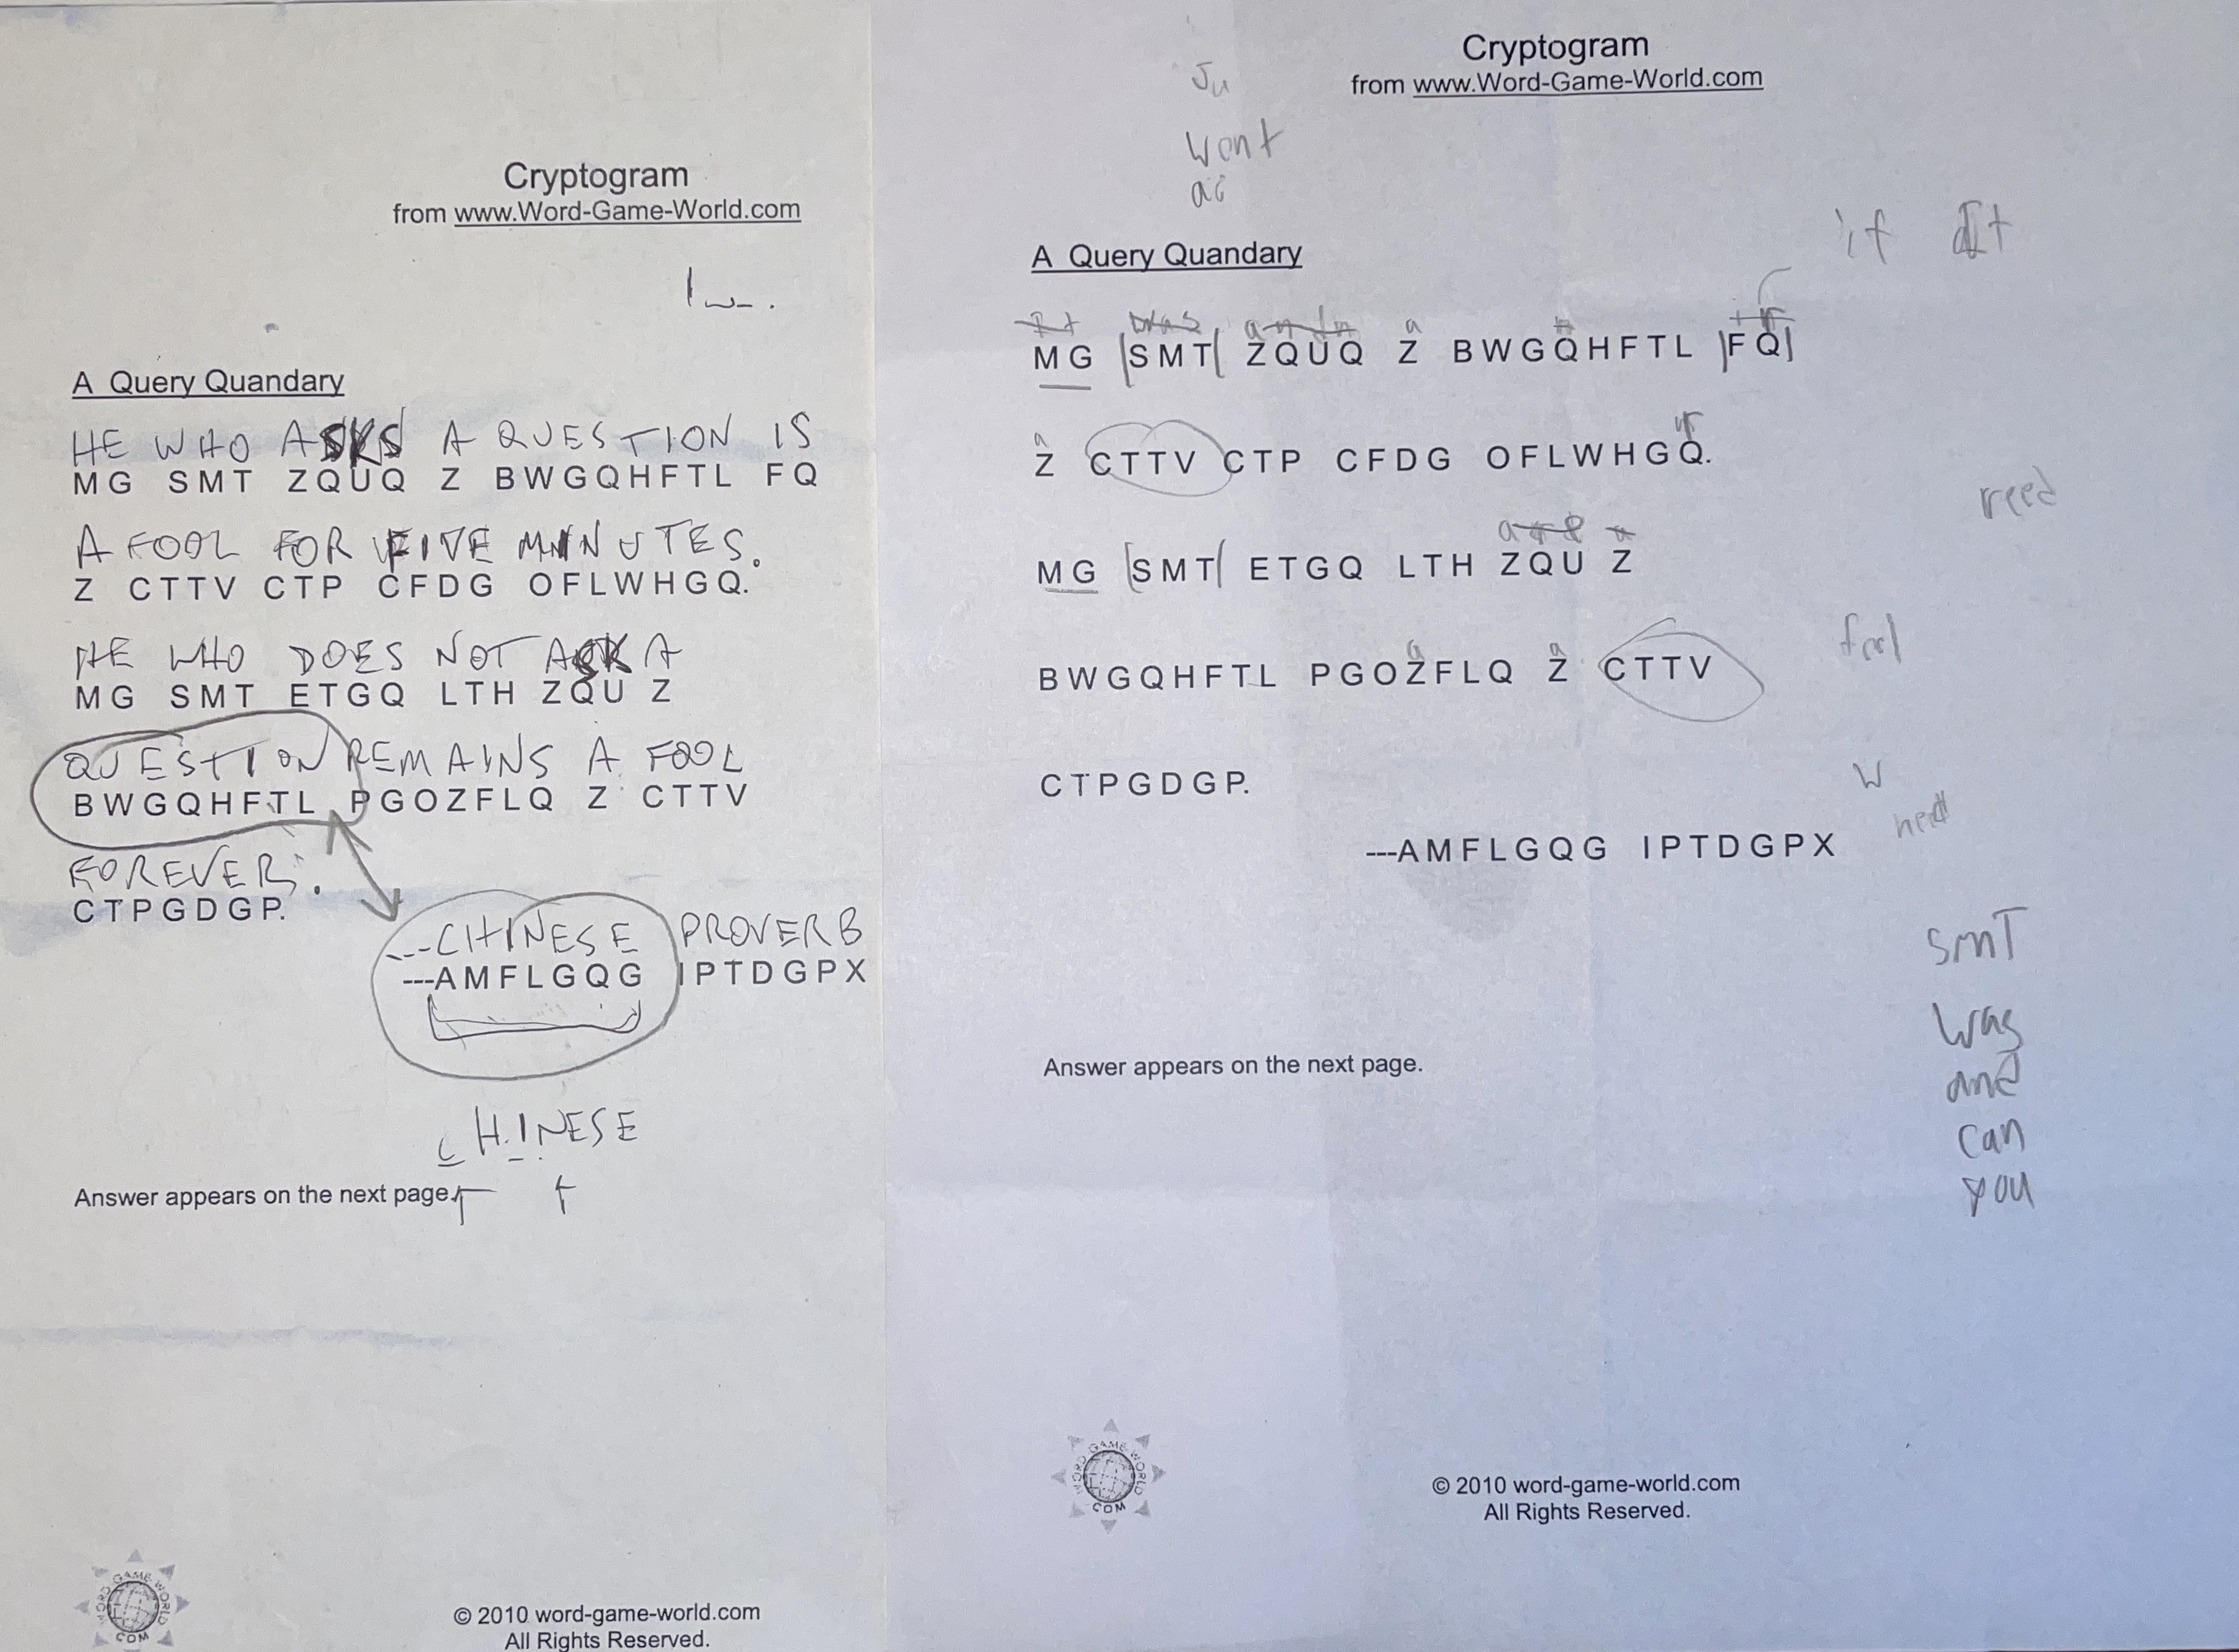 Cryptogram
from www.Word-Game-World.com
A Query Quandary
HE WHO ASKS A QUESTION IS
MG SMT ZQUQ Z BWGQHFTL FQ
A FOOL FOR FIVE MINUTES.
Z CTTV CTP CFDG OFLWHGQ.
HE WHO DOES NOT ASK A
MG SMT ETGQ LTH ZQU Z
QUESTION REMAINS A FOOL
BWGQHFTL PGOZFLQ Z CTTV
FOREVER.
CTPGDGP.
---CHINESE PROVERB
---AMFLGQG IPTDGPX
CHINESE
Answer appears on the next page.
WORD GAME WORLD
COM
© 2010 word-game-world.com
All Rights Reserved.
Cryptogram
from www.Word-Game-World.com
Ju
Went
A Query Quandary
if It
was a
MG SMT ZQUQ Z BWGQHFTL FQ
a
Z CTTV CTP CFDG OFLWHGQ.
reed
MG SMT ETGQ LTH ZQU Z
a a
BWGQHFTL PGOZFLQ Z CTTV
CTPGDGP.
W
need
---AMFLGQG IPTDGPX
SmT
Was
and
can
you
Answer appears on the next page.
WORD GAME WORLD
COM
© 2010 word-game-world.com
All Rights Reserved.